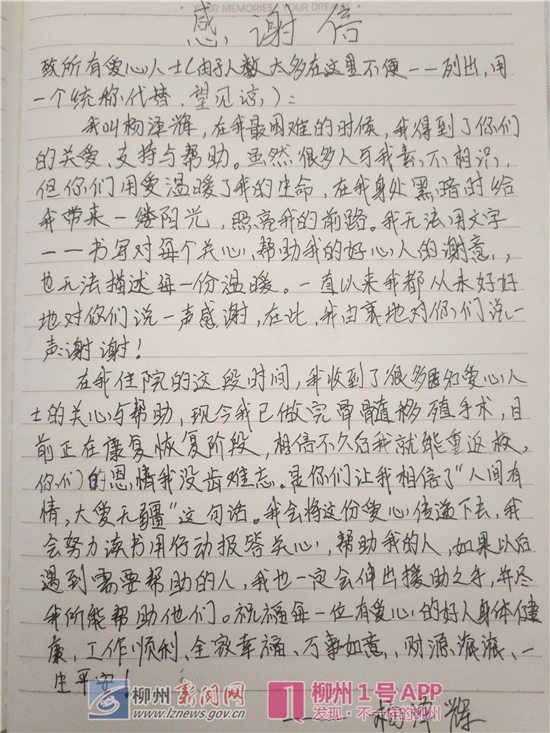 YOUR MEMORIES, YOUR DREAM
感谢信
致所有爱心人士(由于人数太多在这里不便一一列出,用
一个统称代替,望见谅,):
我叫杨泽辉,在我最困难的时候,我得到了你们
的关爱、支持与帮助。虽然很多人与我素不相识,
但你们用爱温暖了我的生命,在我身处黑暗时给
我带来一缕阳光,照亮我的前路。我无法用文字
一一书写对每个关心,帮助我的好心人的谢意,,
也无法描述每一份温暖。一直以来我都从未好好
地对你们说一声感谢,在此,我由衷地对你们说一
声:谢谢!
在我住院的这段时间,我收到了很多爱心人
士的关心与帮助,现今我已做完骨髓移殖手术,目
前正在康复恢复阶段,相信不久后我就能重返校,
你们的恩情我没齿难忘。是你们让我相信了“人间有
情,大爱无疆”这句话。我会将这份爱心传递下去,我
会努力读书用行动报答关心,帮助我的人,如果以后
遇到需要帮助的人,我也一定会伸出援助之手,并尽
我所能帮助他们。祝福每一位有爱心的好人身体健
康,工作顺利、全家幸福、万事如意,、财源滚滚、一
生平安!
杨泽辉
柳州新闻网
www.lznews.gov.cn
柳州1号APP
发现·不一样的柳州